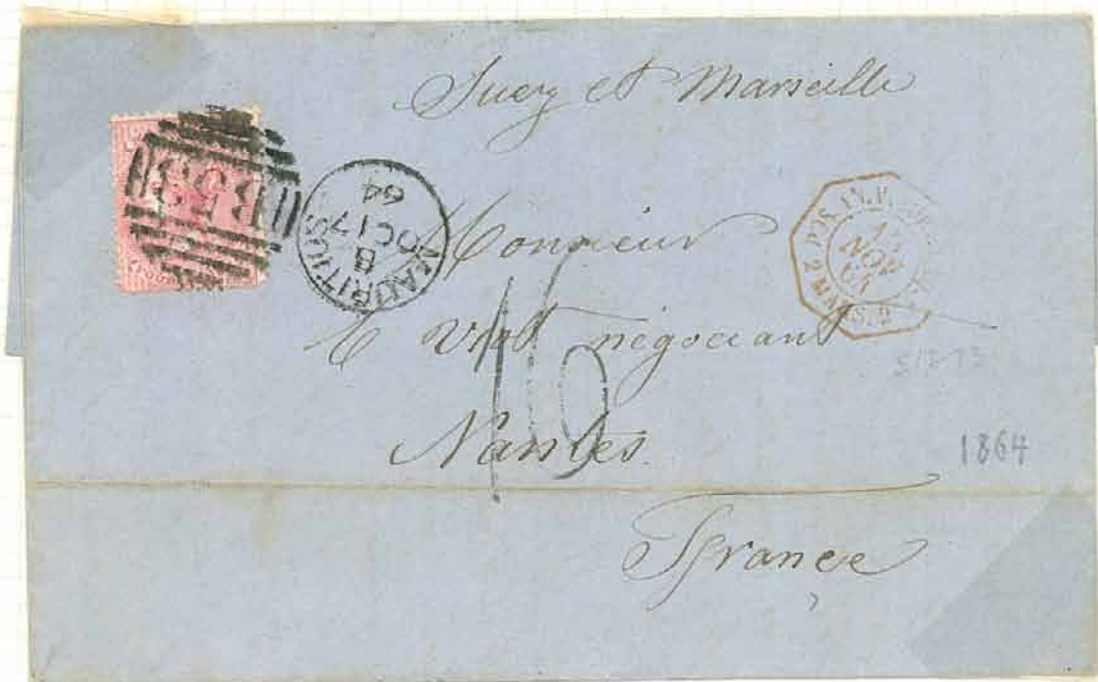 Suez et Marseille
B53
MAURITIUS
B
OC 17
64
NOV
Monsieur
négociant
16
Nantes
1864
France